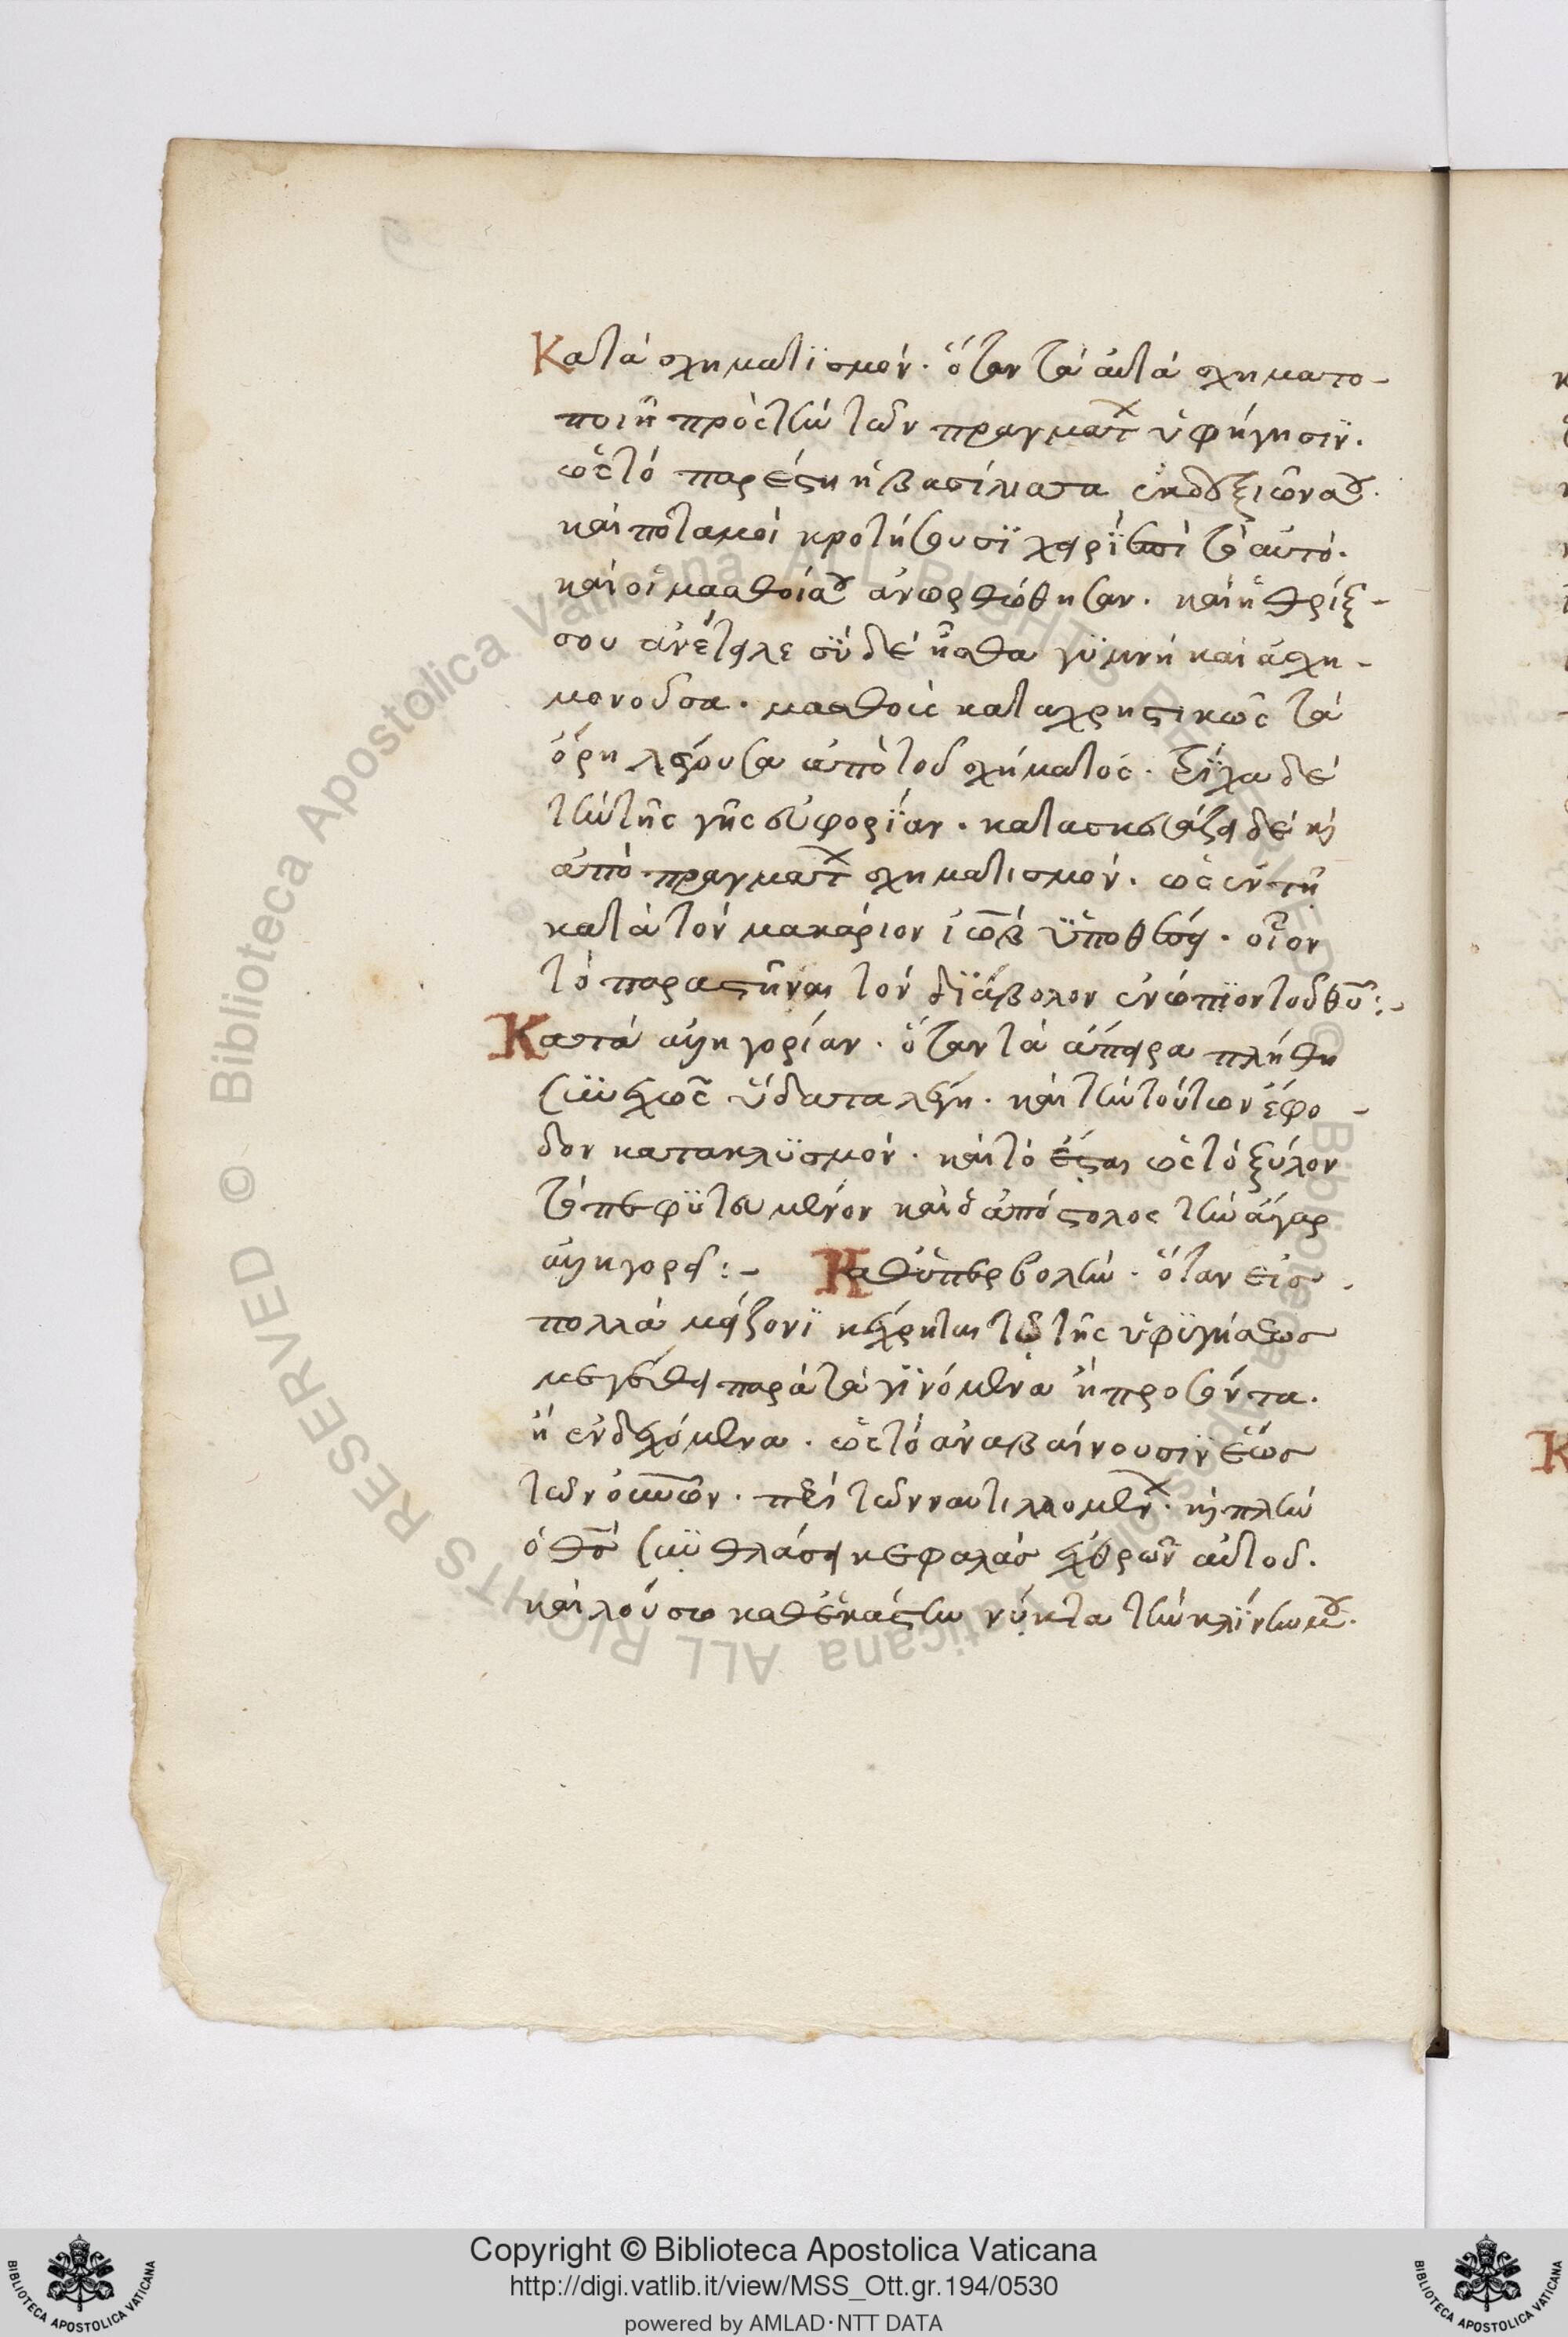 Κατὰ σχηματϊσμόν· ὅταν τὰ αὐτὰ σχηματο-
ποιῆ πρὸς τὴν τῶν πραγμάτ ὑφήγησϊν.
ὡς τὸ παρέστη ἡ βασίλισσα ἐκ δεξιῶν σου.
καὶ ποταμοὶ κροτήσουσϊ χειρὶ ἐπὶ τὸ αυτό.
καὶ οἱ μασθοί σου ἀνωρθώθησαν. καὶ ἡ θρίξ-
σου ἀνέτειλε σὺ δὲ ἦσθα γϋμνὴ καὶ ἀσχη-
μονοῦσα. μασθοὺς καταχρηστικῶς τὰ
ὄρη λέγουσα ἀπὸ τοῦ σχήματος. τρίχα δὲ
τὴν τῆς γῆς εὐφορΐαν. κατασκευάζει δὲ κ
ἀπὸ πραγμάτ σχηματισμόν. ὡς ἐν τῆ
κατὰ τὸν μακάριον ἰὼβ ὑποθέσει. οἷον
τὸ παραστῆναι τὸν διάβολον ἐνώπϊον τοῦ θυ:-
Κατὰ ἀλληγορίαν. ὅταν τὰ ἄπειρα πλήθη
συνεχῶς ὕδατα λέγη. καὶ τὴν τούτων ἔφο-
δον κατακλϋσμόν. καὶ τὸ ἔσται ὡς τὸ ξύλον
τὸ πεφϋτευμένον καὶ ὁ ἀπόστολος τὴν ἄγαρ
ἀλληγορεῖ:- Καθ ὑπερβολὴν. ὅταν εἰσ-
πολλὰ μείζονϊ κέχρηται τῶ τῆς ὑφϋγήσεωσ
μεγέθει παρὰ τὰ γϊνόμενα ἢ προσόντα.
ἢ ἐνδεχόμενα. ὡς τὸ ἀναβαίνουσϊν ἕως
τῶν οὐνῶν. περὶ τῶν ναυτιλλομέν. κ πλὴν
ὁ θσ συνθλάσει κεφαλὰσ ἐχθρῶν αὐτοῦ.
καὶ λούσω καθ ἑκάστην νύκτα τὴν κλίνην μου.
Copyright © Biblioteca Apostolica Vaticana
http://digi.vatlib.it/view/MSS_Ott.gr.194/0530
powered by AMLAD·NTT DATA